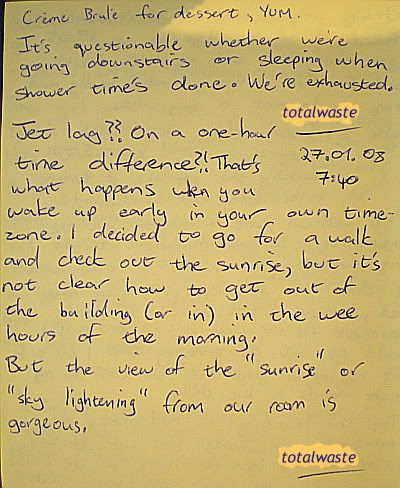 Crème Brule for dessert, YUM.
It's questionable whether we're
going downstairs or sleeping when
shower time's done. We're exhausted.
totalwaste
Jet lag?? On a one-hour
time difference?!! That's
27.01.08
7:40
what happens when you
wake up early in your own time-
zone. I decided to go for a walk
and check out the sunrise, but it's
not clear how to get out of
the building (or in) in the wee
hours of the morning.
But the view of the "sunrise" or
"sky lightening" from our room is
gorgeous.
totalwaste